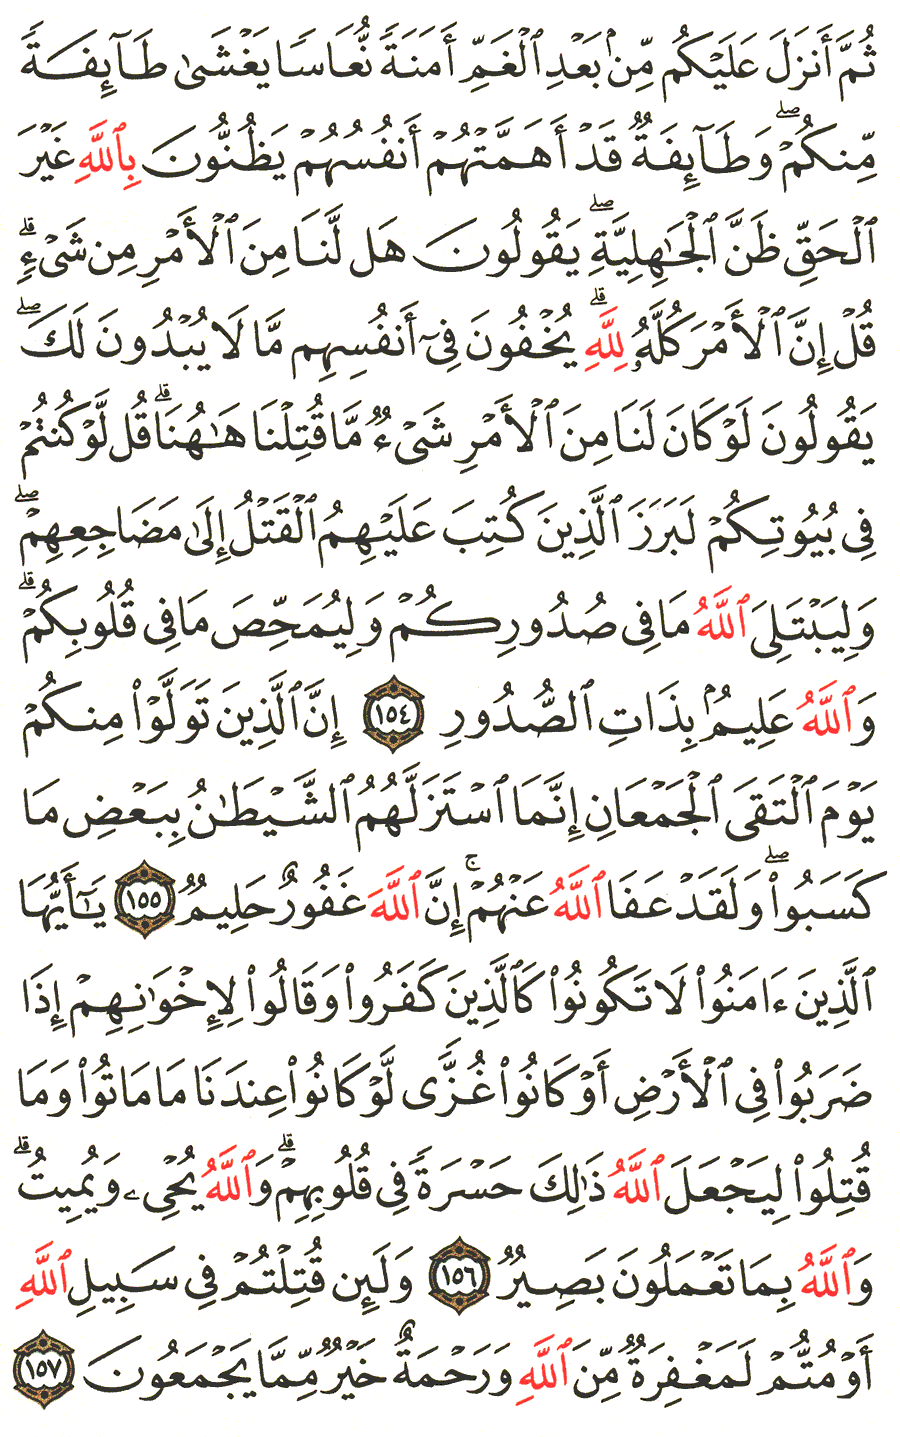 ثُمَّ أَنزَلَ عَلَيْكُم مِّنۢ بَعْدِ ٱلْغَمِّ أَمَنَةً نُّعَاسًا يَغْشَىٰ طَآئِفَةً
مِّنكُمْ ۖ وَطَآئِفَةٌ قَدْ أَهَمَّتْهُمْ أَنفُسُهُمْ يَظُنُّونَ بِٱللَّهِ غَيْرَ
ٱلْحَقِّ ظَنَّ ٱلْجَـٰهِلِيَّةِ ۖ يَقُولُونَ هَل لَّنَا مِنَ ٱلْأَمْرِ مِن شَىْءٍ ۗ
قُلْ إِنَّ ٱلْأَمْرَ كُلَّهُۥ لِلَّهِ ۗ يُخْفُونَ فِىٓ أَنفُسِهِم مَّا لَا يُبْدُونَ لَكَ ۖ
يَقُولُونَ لَوْ كَانَ لَنَا مِنَ ٱلْأَمْرِ شَىْءٌ مَّا قُتِلْنَا هَـٰهُنَا ۗ قُل لَّوْ كُنتُمْ
فِى بُيُوتِكُمْ لَبَرَزَ ٱلَّذِينَ كُتِبَ عَلَيْهِمُ ٱلْقَتْلُ إِلَىٰ مَضَاجِعِهِمْ ۖ
وَلِيَبْتَلِىَ ٱللَّهُ مَا فِى صُدُورِكُمْ وَلِيُمَحِّصَ مَا فِى قُلُوبِكُمْ ۗ
وَٱللَّهُ عَلِيمٌۢ بِذَاتِ ٱلصُّدُورِ ١٥٤ إِنَّ ٱلَّذِينَ تَوَلَّوْا۟ مِنكُمْ
يَوْمَ ٱلْتَقَى ٱلْجَمْعَانِ إِنَّمَا ٱسْتَزَلَّهُمُ ٱلشَّيْطَـٰنُ بِبَعْضِ مَا
كَسَبُوا۟ ۖ وَلَقَدْ عَفَا ٱللَّهُ عَنْهُمْ ۚ إِنَّ ٱللَّهَ غَفُورٌ حَلِيمٌ ١٥٥ يَـٰٓأَيُّهَا
ٱلَّذِينَ ءَامَنُوا۟ لَا تَكُونُوا۟ كَٱلَّذِينَ كَفَرُوا۟ وَقَالُوا۟ لِإِخْوَٰنِهِمْ إِذَا
ضَرَبُوا۟ فِى ٱلْأَرْضِ أَوْ كَانُوا۟ غُزًّى لَّوْ كَانُوا۟ عِندَنَا مَا مَاتُوا۟ وَمَا
قُتِلُوا۟ لِيَجْعَلَ ٱللَّهُ ذَٰلِكَ حَسْرَةً فِى قُلُوبِهِمْ ۗ وَٱللَّهُ يُحْىِۦ وَيُمِيتُ ۗ
وَٱللَّهُ بِمَا تَعْمَلُونَ بَصِيرٌ ١٥٦ وَلَئِن قُتِلْتُمْ فِى سَبِيلِ ٱللَّهِ
أَوْ مُتُّمْ لَمَغْفِرَةٌ مِّنَ ٱللَّهِ وَرَحْمَةٌ خَيْرٌ مِّمَّا يَجْمَعُونَ ١٥٧